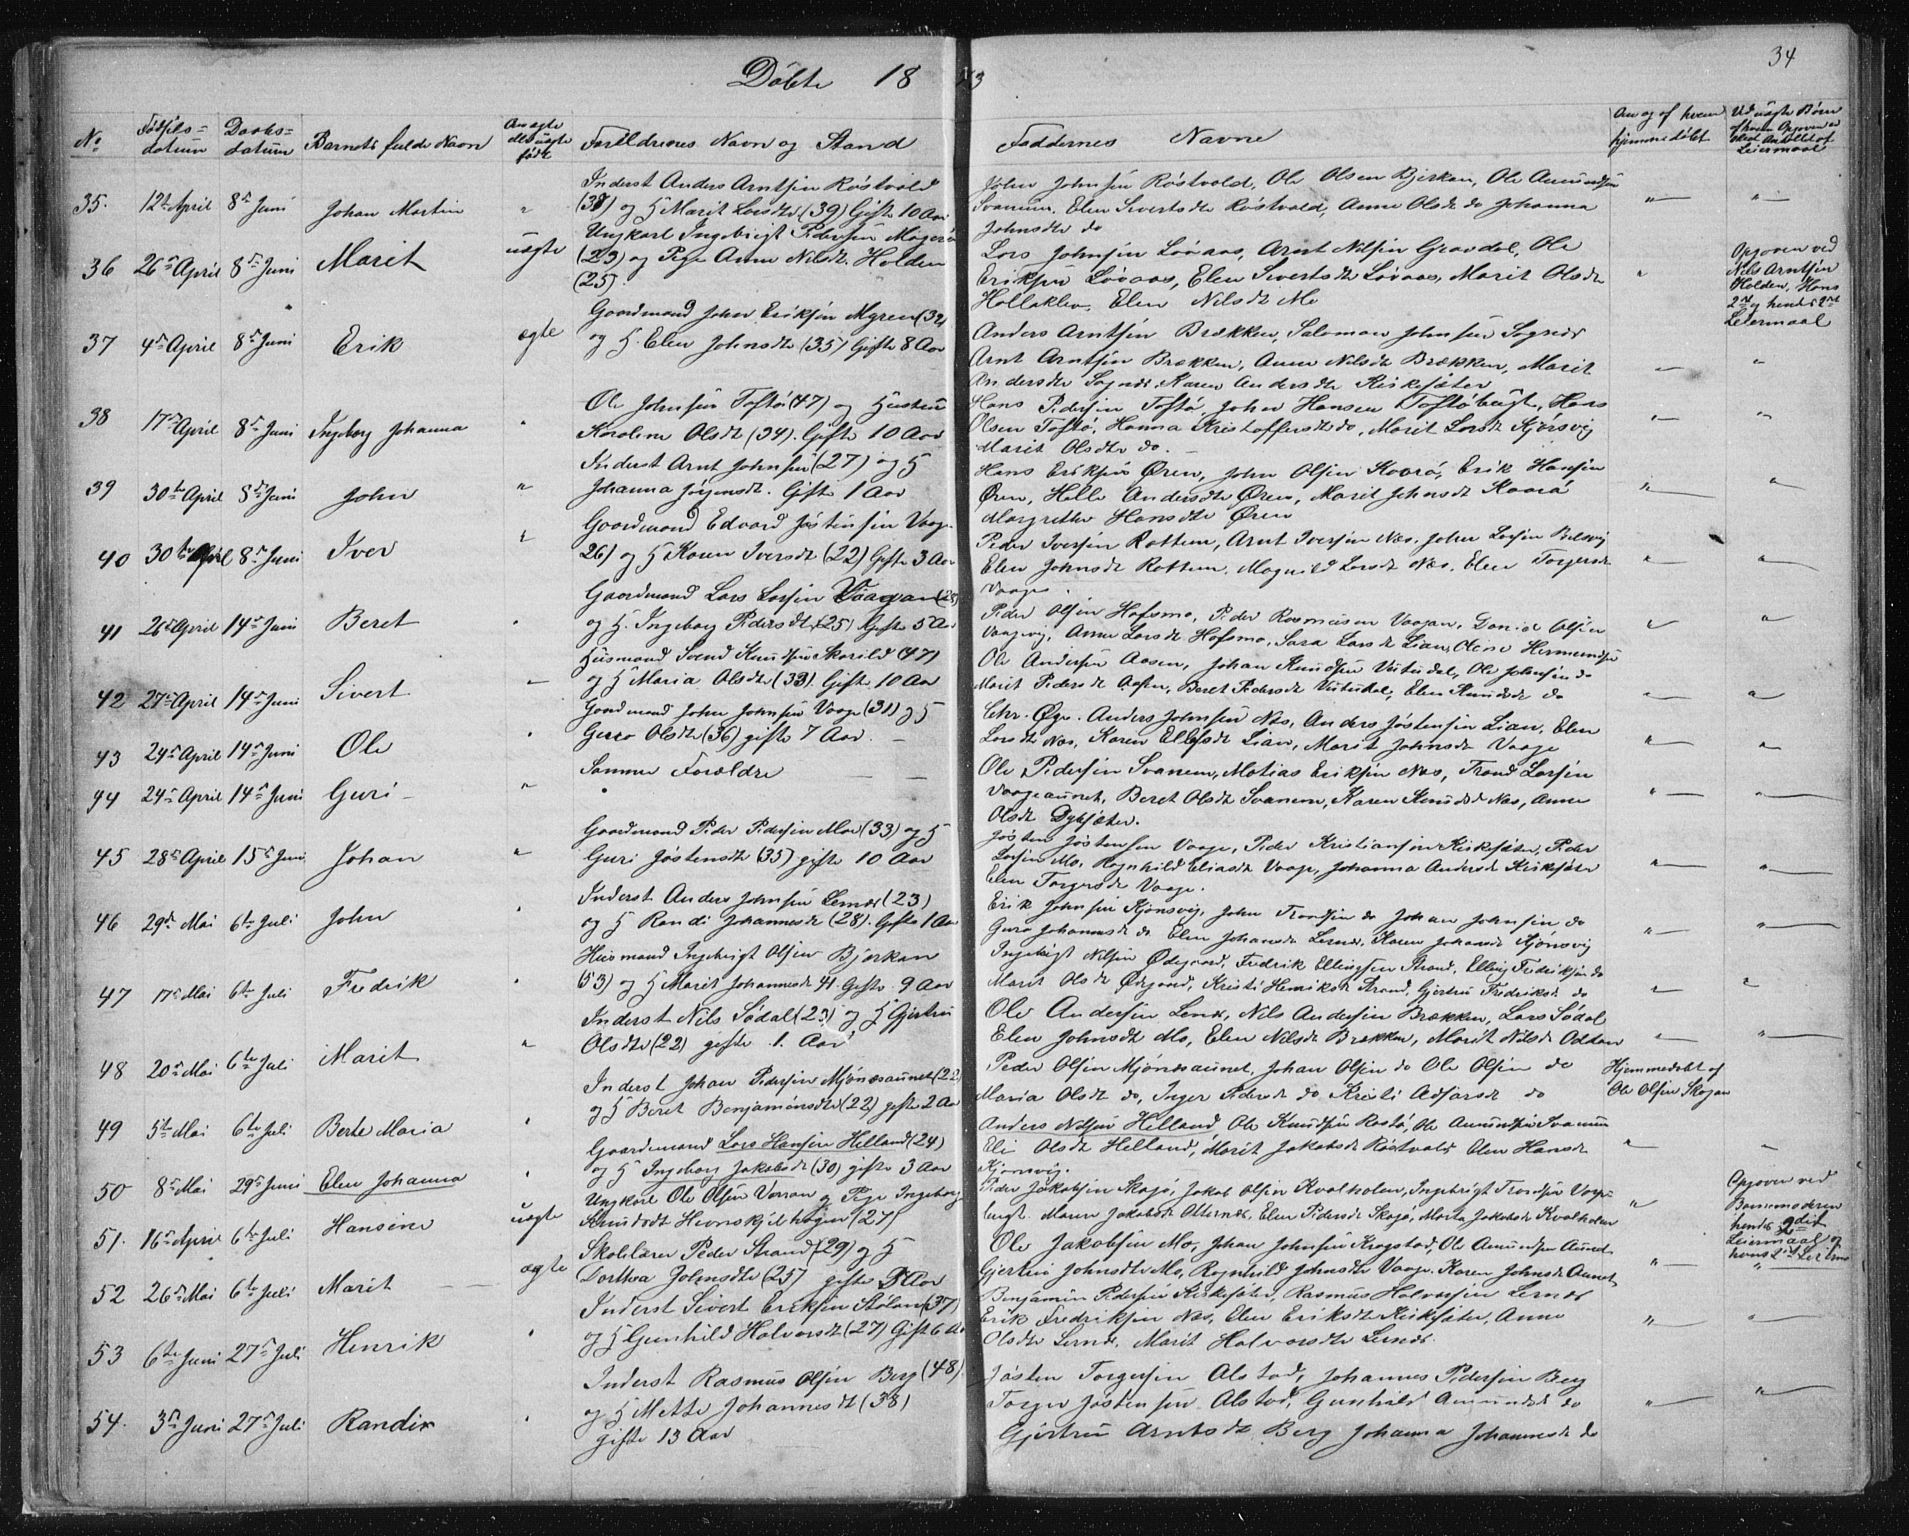 34
Döbte 18 73
No
Fødsels-
datum
Daabs-
datum
Barnets fulde Navn
Om ægte
eller uægte
født
Forældrenes Navn og Stand
Faddernes Navne
Om og af hvem
hjemmedøbt
Leiermaal
35. 12te April 8de Juni Johan Martin "
Inderst Anders Arntsen Röstvold
(38) og H Marit Larsdtr (39) Gifte 10 Aar
John Johnsen Röstvold, Ole Olsen Bjerkan, Ole Amundsen
Svanem, Elen Sivertsdtr Röstvold, Anne Olsdtr do Johanna
Johnsdtr do
36 26de April 8de Juni Marit uægte
Ungkarl Ingebrigt Pedersen Magerö
(23) og Pige Anne Nilsdtr Holden
(25).
Lars Johnsen Løvaas, Arnt Nilsen Gravdal, Ole
Eriksen Løvaas, Elen Sivertsdtr Løvaas, Marit Olsdtr
Hollaklev, Elen Nilsdt Mo
Opgiven ved
Nils Arntsen
Holden, Hans
2det og hendes 2det
Leiermaal
37 4de April 8de Juni Erik ægte
Gaardmand John Eriksen Myren (32)
og H. Elen Johnsdtr (35) Gifte 8 Aar
Anders Arntsen Brækken, Salomon Johnsen Sognes
Arnt Arntsen Brækken, Anne Nilsdt Brækken, Marit
Andersdtr Sognes, Karen Andersdtr Kiskesæter
38 17de April 8de Juni Ingeborg Johanna "
Ole Johnsen Toftö (47) og Hustru
Karoline Olsdt (34). Gifte 10 Aar
Hans Pedersen Toftö, Johan Hansen Toftöbugt, Hans
Olsen Toftö, Hanna Kristoffersdtr do, Marit Larsdt Kjönsvig
Marit Olsdtr do.
39 30te April 8de Juni John "
Inderst Arnt Johnsen (27) og H
Johanna Jörgensdt. Gifte 1 Aar
Hans Eriksen Ören, John Olsen Kaarö, Erik Hansen
Ören, Helle Andersdtr Ören, Marit Johnsdt Kaarö
Margrethe Hansdtr Ören
40 30te April 8de Juni Iver "
Gaardmand Edvard Jöstensen Vaage
26) og H Karen Iversdt (22) Gifte 3 Aar
Peder Iversen Rottem, Arnt Iversen Næs, John Larsen Belsvig
Elen Johnsdt Rottem, Magnild Larsdt Næs, Elen Torgersdt
Vaage.
41 26de April 14de Juni Beret "
Gaardmand Lars Larsen Vaagan (28)
og H. Ingeborg Pedersdt (25) Gifte 5 Aar
Peder Olsen Hofsmo, Peder Rasmusen Vaagan, Daniel Olsen
Vaagvig, Anne Larsdt Hofsmo, Sara Larsdt Lian, Olene Hermundsen
42 27de April 14de Juni Sivert
Husmand Svend Knudsen Skorild (47)
og H Maria Olsdt (33). Gifte 10 Aar
Ole Andersen Aasen, Johan Knudsen Vutudal, Ole Johnsen do
Marit Pedersdt Aasen, Beret Pedersdt Vutudal, Elen Knudsdt do
43 24de April 14de Juni Ole "
Gaardmand John Johnsen Vaage (31) og H
Guro Olsdt (36) gifte 7 Aar.
Chr. Öye. Anders Johnsen Næs, Anders Jöstensen Lian, Elen
Larsdt Næs, Karen Ellefsdt Lian, Marit Johnsdt Vaage
44 24de April 14de Juni Guri "
Samme Forældre
Ole Pedersen Svanem, Matias Eriksen Næs, Trond Larsen
Vaageaunet, Beret Olsdt Svanem, Karen Knudsdt Næs, Anne
Olsdt Dybsæter.
45 28de April 15de Juni Johan "
Gaardmand Peder Pedersen Moe (33) og H
Guri Jöstensdt (35) gifte 10 Aar
Jösten Jöstensen Vaage, Peder Kristiansen Kiskesæter, Peder
Larsen Mo, Ragnhild Eliasdt Vaage, Johanna Andersdt Kiskesæter
Elen Torgersdt Vaage.
46 29de Mai 6te Juli John "
Inderst Anders Johnsen Lernæs (23)
og H Randi Johannesdt (28). Gifte 1 Aar
Erik Johnsen Kjönsvig, John Trondsen do Johan Johnsen do
Guro Johannesdt do Elen Johansdt Lernæs, Karen Johansdt Kjönsvig
47 17de Mai 6te Juli Fredrik "
Husmand Ingebrigt Olsen Bjerkan
(53) og H Marit Johannesdt 41. Gifte 9 Aar
Ingebrigt Nilsen Ödegaard, Fredrik Ellingsen Strand, Elling Fredriksen do
Marit Olsdt Ödegaard, Kristi Henriksdt Strand, Gjertru Fredriksdt do
48 20de Mai 6te Juli Marit "
Inderst Nils Södal (23) og H Gjertru
Olsdtr (22) gifte 1. Aar
Ole Andersen Lernæs, Nils Andersen Brækken, Lars Södal
Elen Johnsdt Mo, Elen Nilsdt Brækken, Marit Nilsdt Oddan
49 5te Mai 6te Juli Berte Maria "
Inderst Johan Pedersen Mjönæsaunet (22)
og H Beret Benjaminsdtr (22) gifte 2 Aar
Peder Olsen Mjönæsaunet, Johan Olsen do Ole Olsen do
Maria Olsdt do, Inger Pedersdt do Kristi Adsarsdt do
Hjemmedøbt af
Ole Olsen Skogan
50 8de Mai 29de Juni Elen Johanna "
Gaardmand Lars Hansen Helland (24)
og H Ingeborg Jakobsdt (30) gifte 3 Aar
Anders Nilsen Helland Ole Knudsen Rostö, Ole Amundsen Svanem
Eli Olsdt Helland, Marit Jakobsdt Röstvold Elen Hansdt
Kjönsvig.
51. 16de April 6te Juli Hansine uægte
Ungkarl Ole Olsen Varran og Pige Ingeborg
Knudsdt Hevnskjelhogen (27)
Peder Jakobsen Skogö, Jakob Olsen Kvalholm, Ingebrigt Trondsen
Maren Jakobsdt Otternes, Elen Pedersdt Skogö, Marta Jakobsdt Kvalholm
Opgiven ved
Barnemoderen
hendes 2det
Leiermaal og
hans 1ste Leierm
52 26de Mai 6te Juli Marit ægte
Skolelærer Peder Strand (29) og H
Dorthea Johnsdtr (25) gifte 5 Aar
Ole Jakobsen Mo, Johan Johnsen Krogstad, Ole Amundsen Aunet
Gjertru Johnsdtr Mo, Ragnhild Johnsdt Vaage, Karen Johnsdt Aunet
53 6te Juni 27de Juli Henrik "
Inderst Sivert Eriksen Stölan (37)
og H Gunhild Halvorsdt (27) Gift 6 Aar
Benjamin Pedersen Kiskesæter, Rasmus Halvorsen Lernes
Erik Fredriksen Næs, Elen Eriksdt Kiskesæter, Anne
Olsdtr Lernæs, Marit Halvorsdtr Lernæs.
54. 3de Juni 27de Juli Randi "
Inderst Rasmus Olsen Berg (48)
og H Mette Johannesdt (38)
gifte 13 Aar
Jösten Torgersen Alstad, Johannes Pedersen Berg
Torger Jöstensen Alstad, Gunhild Amundsdt do
Gjertru Arntsdt Berg Johanna Johannesdt do